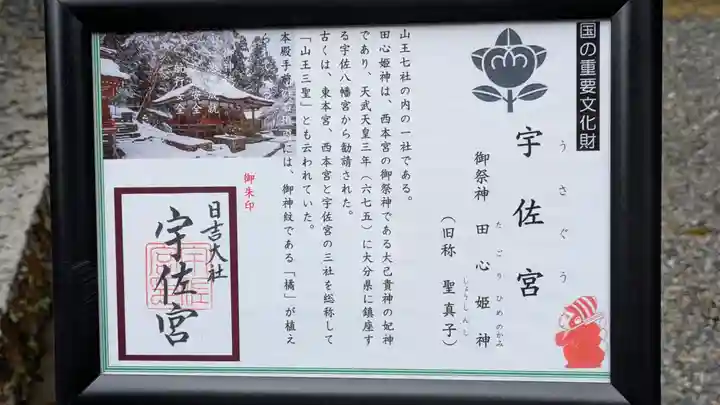 国の重要文化財
宇佐宮
うさぐう
御祭神 田心姫神
たごりひめのかみ
（旧称 聖真子）
しょうしんし
山王七社の内の一社である。
田心姫神は、西本宮の御祭神である大己貴神の妃神
であり、天武天皇三年（六七五）に大分県に鎮座す
る宇佐八幡宮から勧請された。
古くは、東本宮、西本宮と宇佐宮の三社を総称して
「山王三聖」とも云われていた。
には、御神紋である「橘」が植え
本殿手前
御朱印
日吉大社
宇佐宮